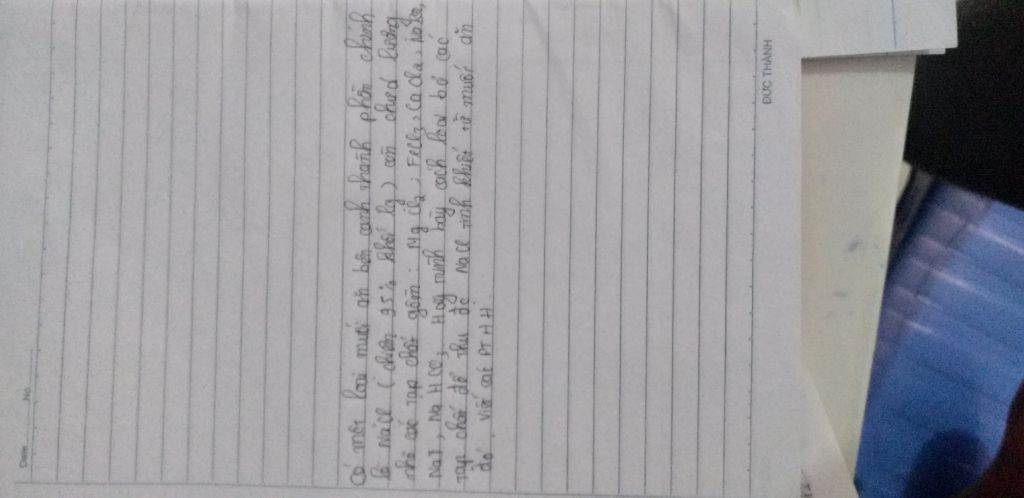 Date No
Có một loại muối ăn bên cạnh thành phần chính
là NaCl (chiếm 95% khối lg) còn chứa lượng
nhỏ các tạp chất gồm: MgCl2; FeCl3, CaCl2,
NaI, NaHCO3 Hãy trình bày cách loại bỏ các
tạp chất để thu đc NaCl tinh khiết từ muối ăn
đó. Viết các PTHH
ĐỨC THÀNH